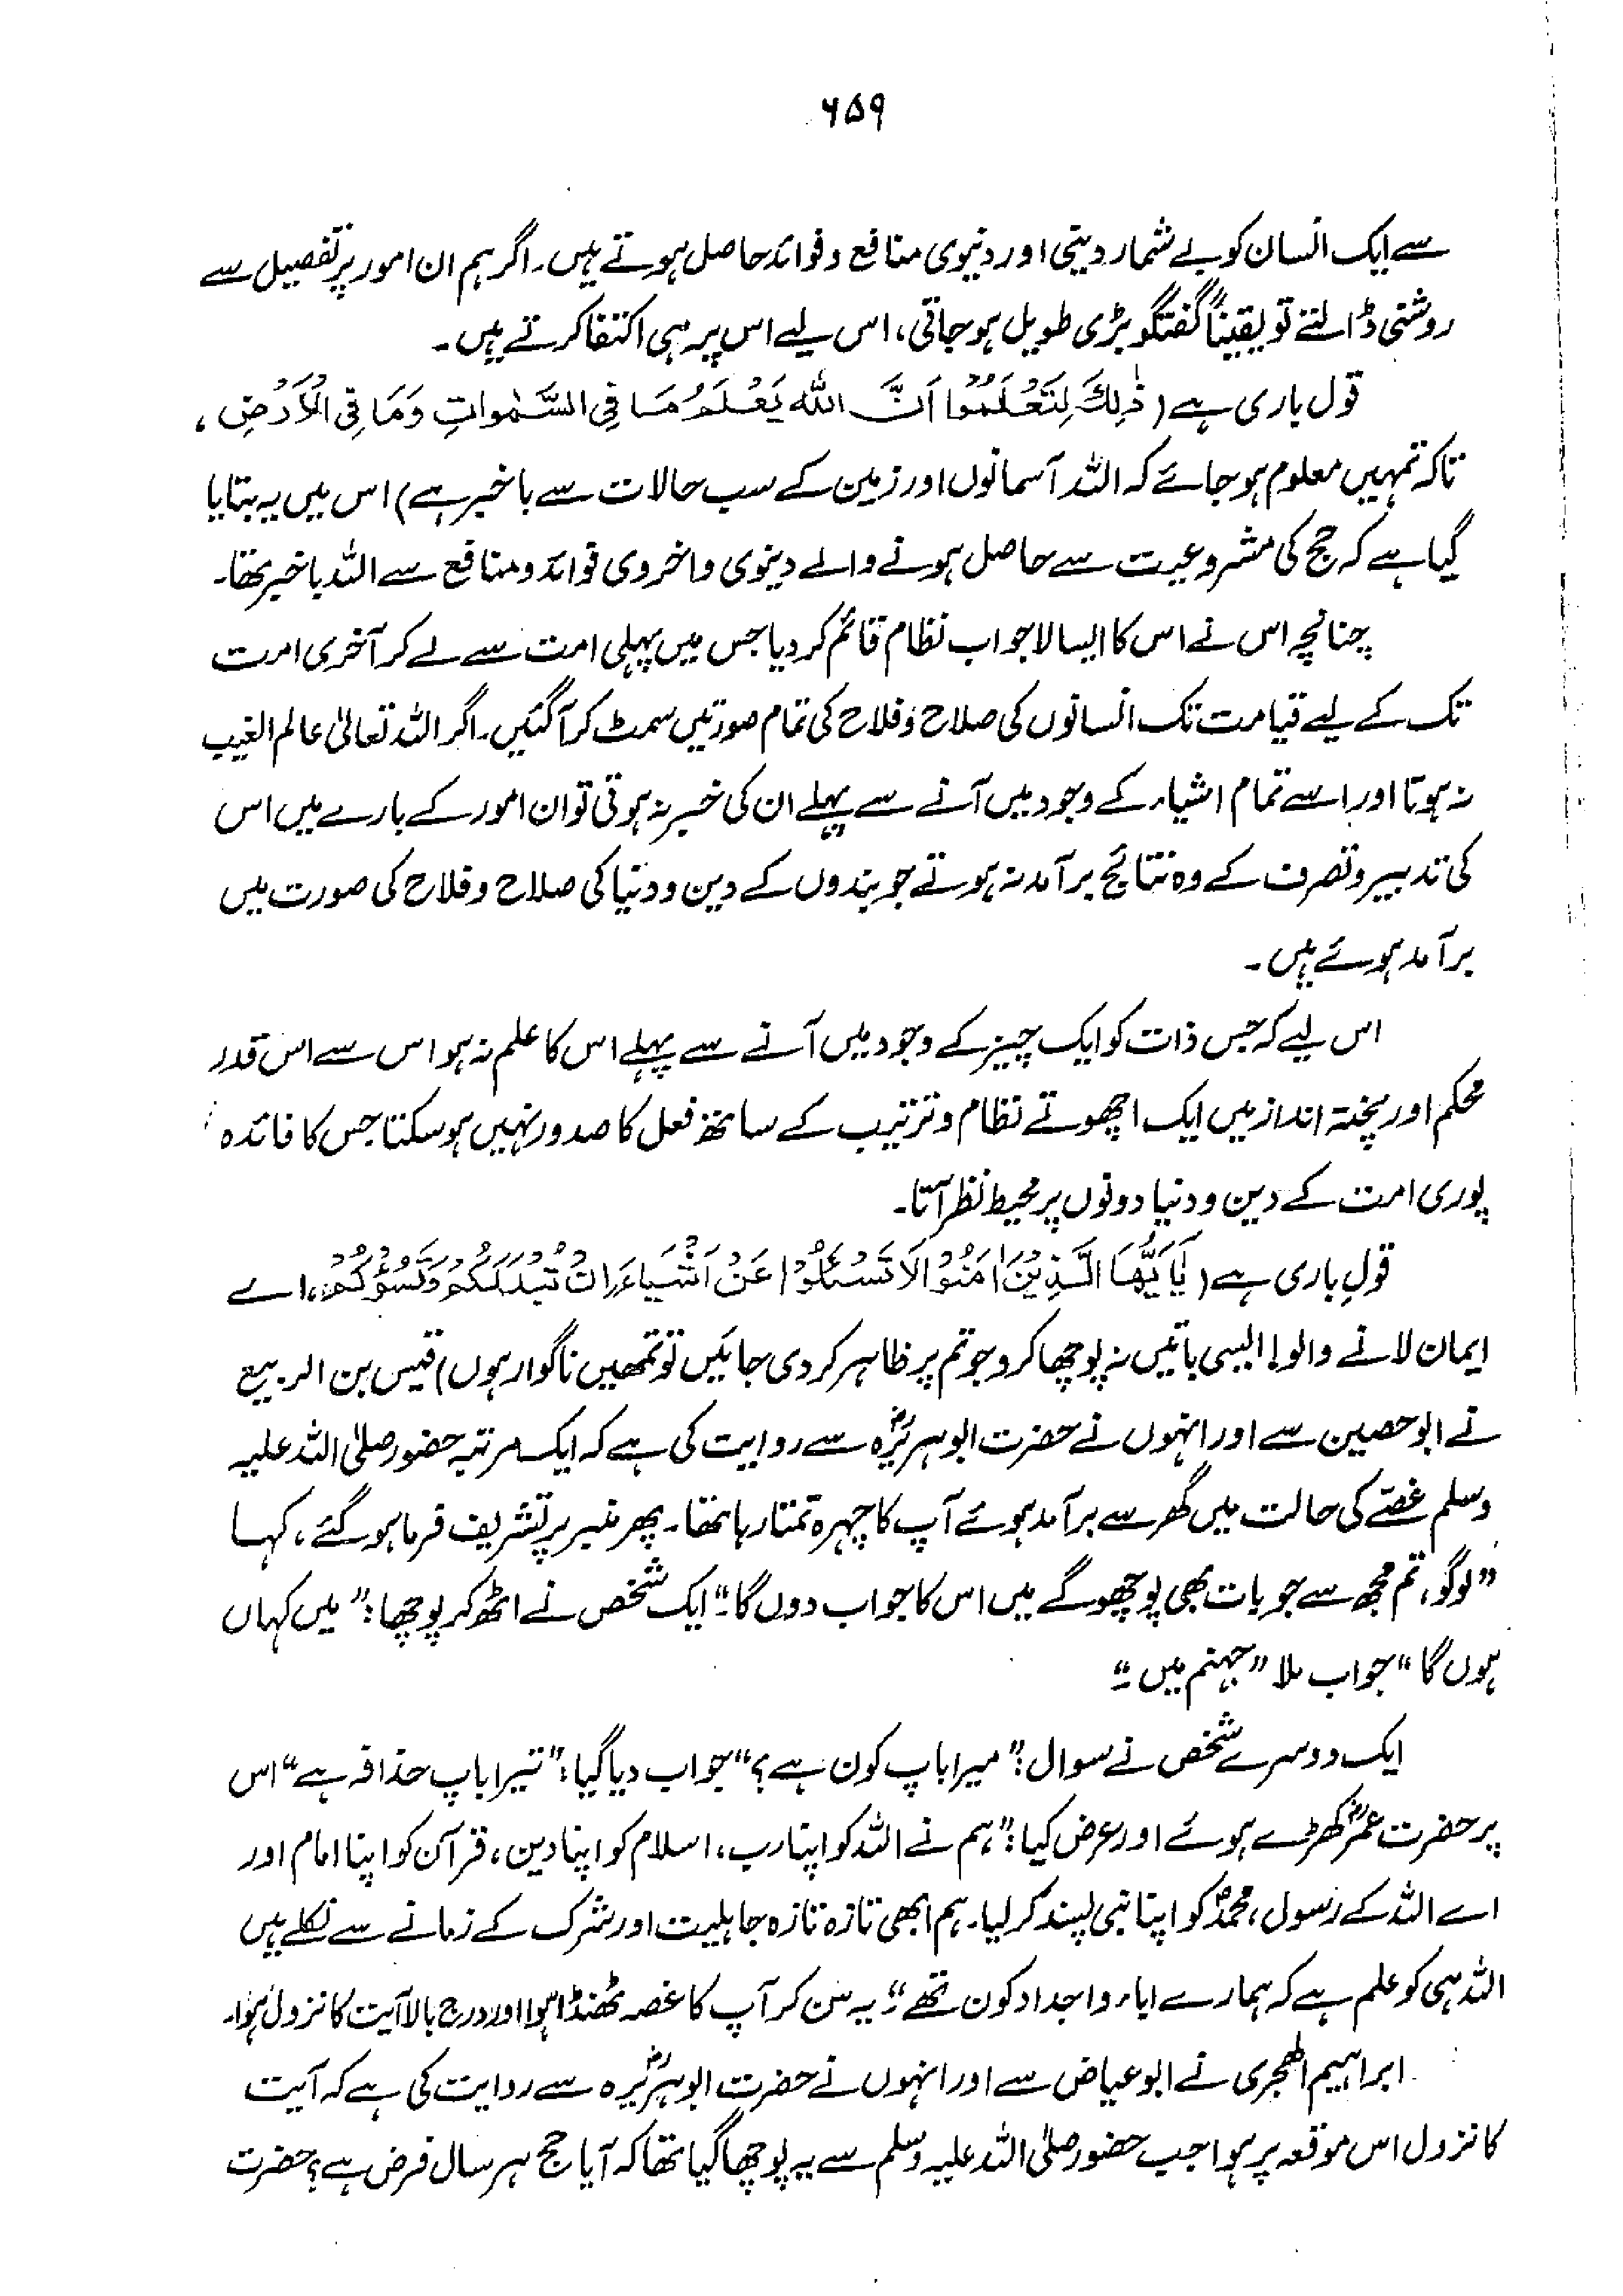 ۶۵۹
سے ایک انسان کو بے شمار دینی اور دنیوی منافع و فوائد حاصل ہوتے ہیں۔ اگر ہم ان امور پر تفصیل سے
روشنی ڈالتے تو یقیناً گفتگو بڑی طویل ہو جاتی، اس لیے اس پر ہی اکتفا کرتے ہیں۔
قول باری ہے (ذٰلِكَ لِتَعْلَمُوْا اَنَّ اللّٰهَ يَعْلَمُ مَا فِي السَّمٰوَاتِ وَمَا فِي الْاَرْضِ،
تاکہ تمہیں معلوم ہو جائے کہ اللہ آسمانوں اور زمین کے سب حالات سے باخبر ہے) اس میں یہ بتایا
گیا ہے کہ حج کی مشروعیت سے حاصل ہونے والے دینوی و اخروی فوائد و منافع سے اللہ باخبر تھا۔
چنانچہ اس نے اس کا ایسا لاجواب نظام قائم کر دیا جس میں پہلی امت سے لے کر آخری امت
تک کے لیے قیامت تک انسانوں کی صلاح و فلاح کی تمام صورتیں سمٹ کر آگئیں۔ اگر اللہ تعالیٰ عالم الغیب
نہ ہوتا اور اسے تمام اشیاء کے وجود میں آنے سے پہلے ان کی خبر نہ ہوتی تو ان امور کے بارے میں اس
کی تدبیر و تصرف کے وہ نتائج برآمد نہ ہوتے جو بندوں کے دین و دنیا کی صلاح و فلاح کی صورت میں
برآمد ہوئے ہیں۔
اس لیے کہ جس ذات کو ایک چیز کے وجود میں آنے سے پہلے اس کا علم نہ ہو اس سے اس قدر
محکم اور پختہ انداز میں ایک اچھوتے نظام و ترتیب کے ساتھ فعل کا صدور نہیں ہو سکتا جس کا فائدہ
پوری امت کے دین و دنیا دونوں پر محیط نظر آتا۔
قولِ باری ہے (يٰاَيُّهَا الَّذِيْنَ اٰمَنُوْا لَا تَسْئَلُوْا عَنْ اَشْيَاءَ اِنْ تُبْدَ لَكُمْ تَسُؤْكُمْ، اے
ایمان لانے والو! ایسی باتیں نہ پوچھا کرو جو تم پر ظاہر کر دی جائیں تو تمھیں ناگوار ہوں) قیس بن الربیع
نے ابو حصین سے اور انہوں نے حضرت ابوہریرہؓ سے روایت کی ہے کہ ایک مرتبہ حضور صلی اللہ علیہ
وسلم غصے کی حالت میں گھر سے برآمد ہوئے آپ کا چہرہ تمتا رہا تھا۔ پھر منبر پر تشریف فرما ہو گئے، کہا
”لوگو، تم مجھ سے جو بات بھی پوچھو گے میں اس کا جواب دوں گا۔“ ایک شخص نے اٹھ کر پوچھا: ”میں کہاں
ہوں گا“ جواب ملا ”جہنم میں۔“
ایک دوسرے شخص نے سوال: ”میرا باپ کون ہے؟“ جواب دیا گیا: ”تیرا باپ حذافہ ہے“ اس
پر حضرت عمرؓ کھڑے ہوئے اور عرض کیا: ”ہم نے اللہ کو اپنا رب، اسلام کو اپنا دین، قرآن کو اپنا امام اور
اے اللہ کے رسول، محمدؐ کو اپنا نبی پسند کر لیا۔ ہم ابھی تازہ تازہ جاہلیت اور شرک کے زمانے سے نکلے ہیں
اللہ ہی کو علم ہے کہ ہمارے اباء و اجداد کون تھے“۔ یہ سن کر آپ کا غصہ ٹھنڈا ہوا اور درج بالا آیت کا نزول ہوا۔
ابراہیم الھجری نے ابو عیاض سے اور انہوں نے حضرت ابوہریرہؓ سے روایت کی ہے کہ آیت
کا نزول اس موقعہ پر ہوا جب حضور صلی اللہ علیہ وسلم سے یہ پوچھا گیا تھا کہ آیا حج ہر سال فرض ہے؟ حضرت